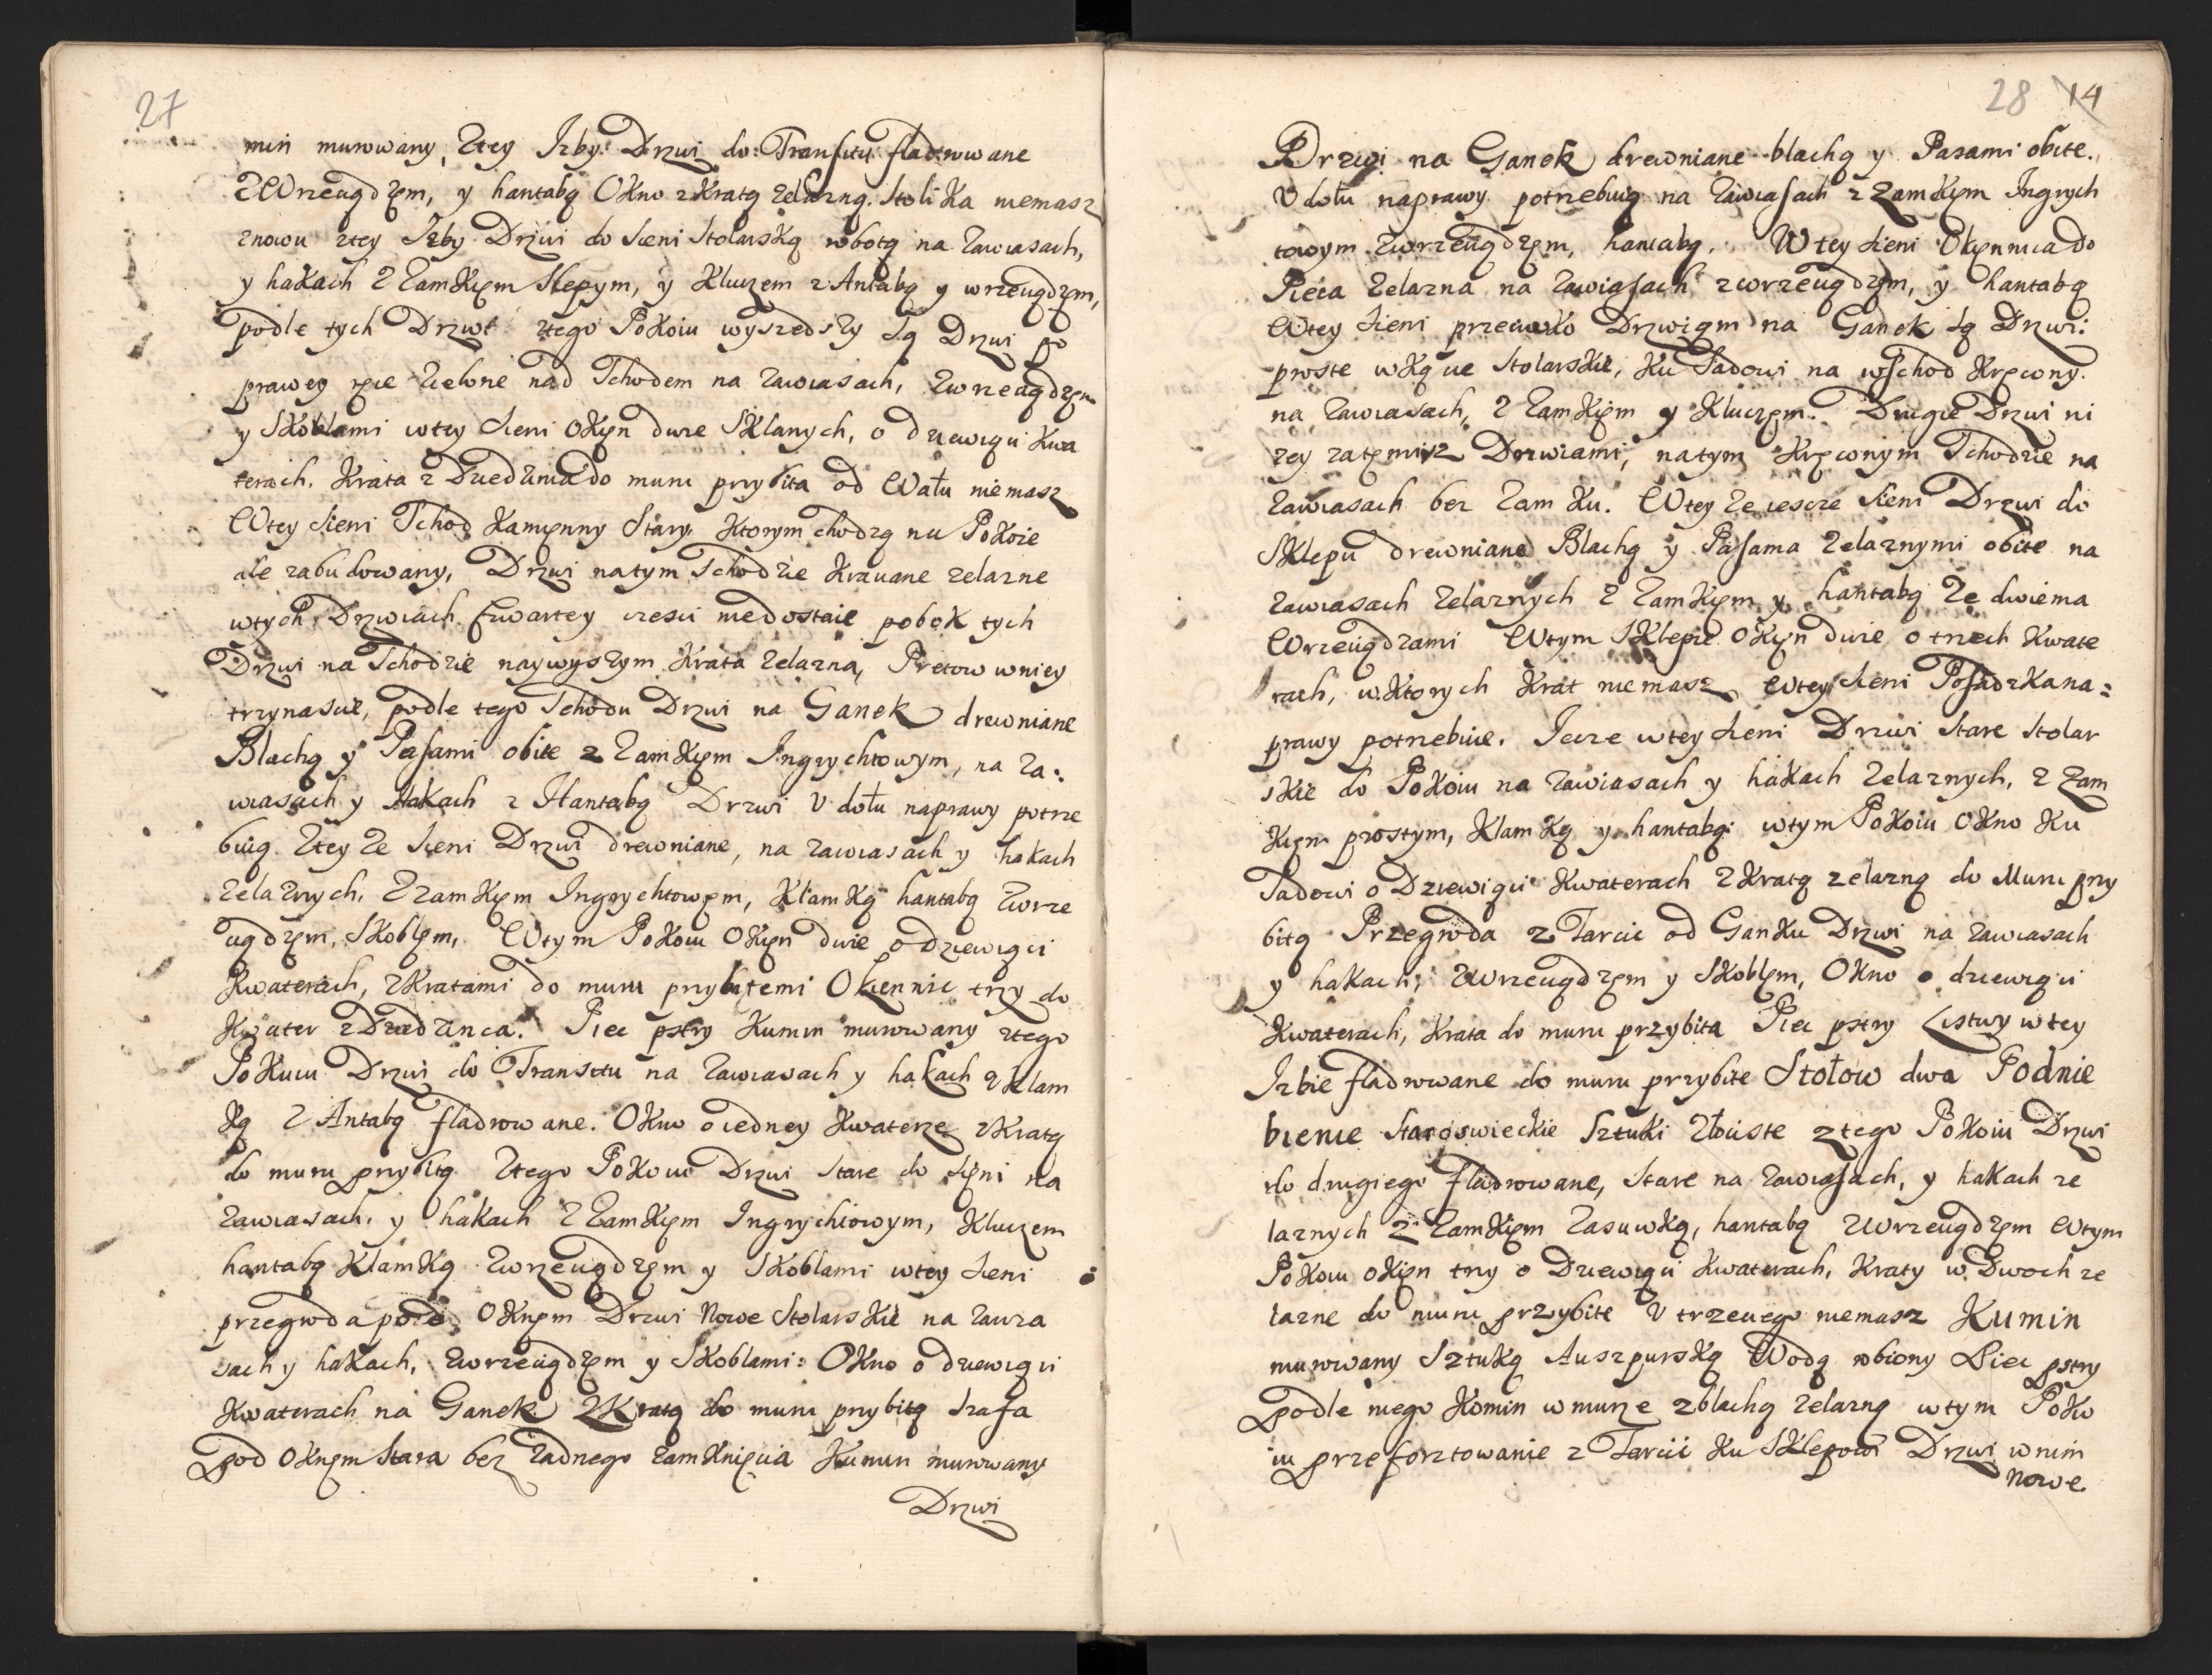 27
min murowany, Ztey Izby Drzwi do Transitu fladrowane
ZWrzeciądzem, y hantabą Okno z Kratą zelazną. Stolika niemasz
znowu ztey Izby Drzwi do Sieni Stolarską robotą na Zawiasach,
y hakach Z Zamkiem Slepym, y Kluczem z Antabą y wrzeciądzem,
podle tych Drzwi ztego Pokoiu wyszedszy Są Drzwi po
prawey ręce Zielone nad Schodem na zawiasach, Zwrzeciądzem
y Skoblami wtey Sieni Okien dwie Sklanych, o dziewiąci Kwa
terach. Krata z Dziedzinca do muru przybita od Wału niemasz
Wtey Sieni Schod Kamienny Stary Ktorym chodzą na Pokoie
ale zabudowany, Drzwi natym Schodzie Kratane zelazne
wtych Drzwiach Czwartey częsci niedostaie pobok tych
Drzwi na Schodzie naywyszym Krata zelazna, Prętow wniey
trzynascie, podle tego Schodu Drzwi na Ganek drewniane
Blachą y Pasami obite z Zamkiem Ingrychtowym, na Za:
wiasach y Hakach z Hantabą Drzwi U dołu naprawy potrze
buią Ztey Ze Sieni Drzwi drewniane, na zawiasach y hakach
zelaznych. Z zamkiem Ingrychtowem, Klamką hantabą Zwrze
ciądzem, Skoblem, Wtym Pokoiu Okien dwie o dziewiąci
Kwaterach, zKratami do muru przybitemi Okiennic trzy do
Kwater z Dziedzinca. Piec pstry Kumin murowany ztego
Pokuiu Drzwi do Transitu na Zawiasach y hakach z Klam
Ką z Antabą fladrowane. Okno o iedney Kwaterze zKratą
do muru przybitą Ztego Pokoiu Drzwi Stare do Sieni na
Zawiasach, y hakach Z Zamkiem Ingrychtowym, Kluczem
hantabą Klamką Zwrzeciądzem y Skoblami wtey Sieni
przegroda pod Oknem Drzwi Nowe Stolarskie na zawia
sach y hakach, zwrzeciądzem y Skoblami: Okno o dziewiąci
Kwaterach na Ganek Z Kratą do muru przybitą Szafa
pod Oknem Stara bez żadnego zamknięcia Kumin murowany
Drzwi
28 14
Drzwi na Ganek drewniane blachą y Pasami obite.
U dołu naprawy potrzebuią na Zawiasach z Zamkiem Ingrych
towym Zwrzeciądzem, hantabą, W tey Sieni Okiennica do
Pieca Zelazna na Zawiasach zwrzeciądzem, y hantabą
Wtey Sieni przeciwko Drzwiom na Ganek Są Drzwi
proste wKącie Stolarskie, Ku Sadowi na wschod Kręcony
na Zawiasach, z Zamkiem y Kluczem. Drugie Drzwi ni
zey zatemisz Drzwiami, natym Kręconym Schodzie na
Zawiasach bez Zamku. Wtey Ze iescze Sieni Drzwi do
Sklepu drewniane Blachą y Pasama Zelaznymi obite na
Zawiasach Zelaznych z Zamkiem y hantabą Ze dwiema
Wrzeciądzami Wtym Sklepie Okien dwie o trzech Kwate
rach, wKtorych Krat niemasz Wtey Sieni Posadzka na=
prawy potrzebuie. Iecze wtey Sieni Drzwi Stare Stolar
skie do Pokoiu na zawiasach y hakach Zelaznych, z Zam
Kiem prostym, Klamką y hantabą wtym Pokoiu Okno Ku
Sadowi o Dziewiąci Kwaterach z Kratą zelazną do Muru przy
bitą Przegroda z Tarcic od Ganku Drzwi na zawiasach
y hakach, ZWrzeciądzem y Skoblem, Okno o dziewiąci
Kwaterach, Krata do muru przybita Piec pstry Listwy wtey
Izbie fladrowane do muru przybite Stołow dwa Podnie
bienie Staroswieckie Sztuki Złociste ztego Pokoiu Drzwi
do drugiego fladrowane, Stare na zawiasach, y hakach ze
laznych z Zamkiem Zasuwką, hantabą zWrzeciądzem Wtym
Pokoiu okien trzy o Dziewiąci Kwaterach, Kraty w Dwoch ze
lazne do muru przybite U trzeciego niemasz Kumin
murowany Sztuką Auszpurską Wodą robiony Piec pstry
podle niego Komin w murze zblachą zelazną wtym Poko
iu przeforztowanie z Tarcic Ku Sklepowi Drzwi wnim
Nowe.